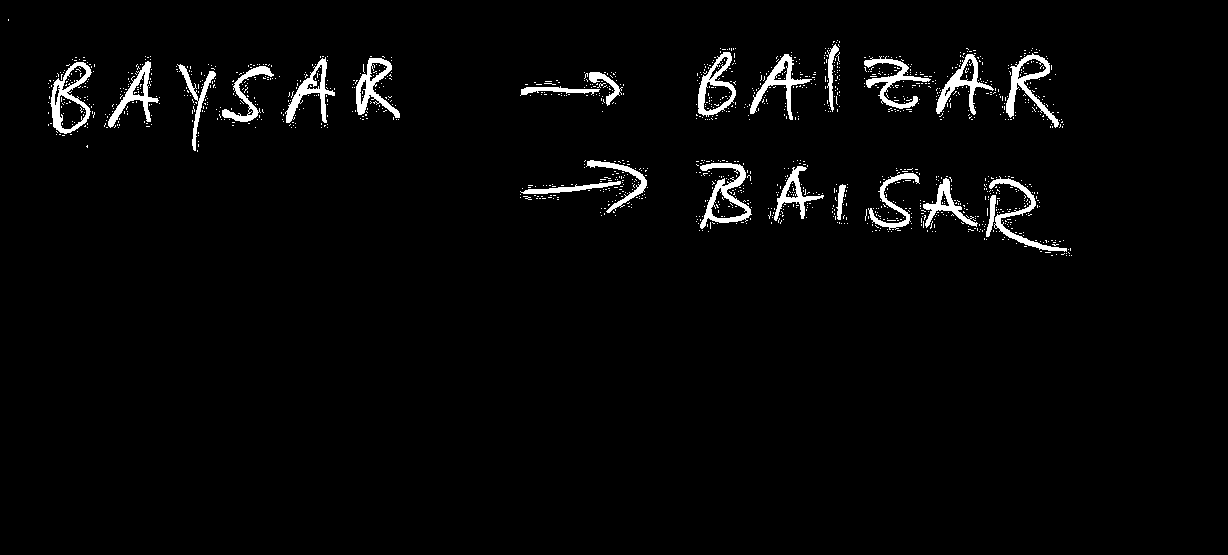 BAYSAR → BAIZAR
→ BAISAR